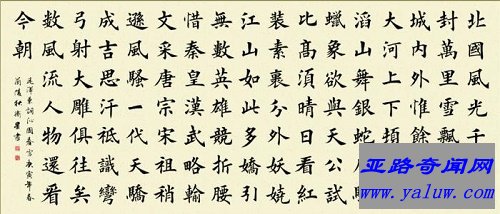 北國風光千
封萬里雪飄
城內外惟餘
大河上下頓
滔山舞銀蛇
蠟象欲與天公試
比高須晴日看紅
裝素裹分外妖嬈
江山如此多嬌引
無數英雄競折腰
惜秦皇漢武略輸
文采唐宗宋祖稍
遜風騷一代天驕
成吉思汗祗識彎
弓射大雕俱往矣
數風流人物還看
今朝
毛澤東詞沁園春雪庚寅年春
亚路奇闻网
www.yaluw.com